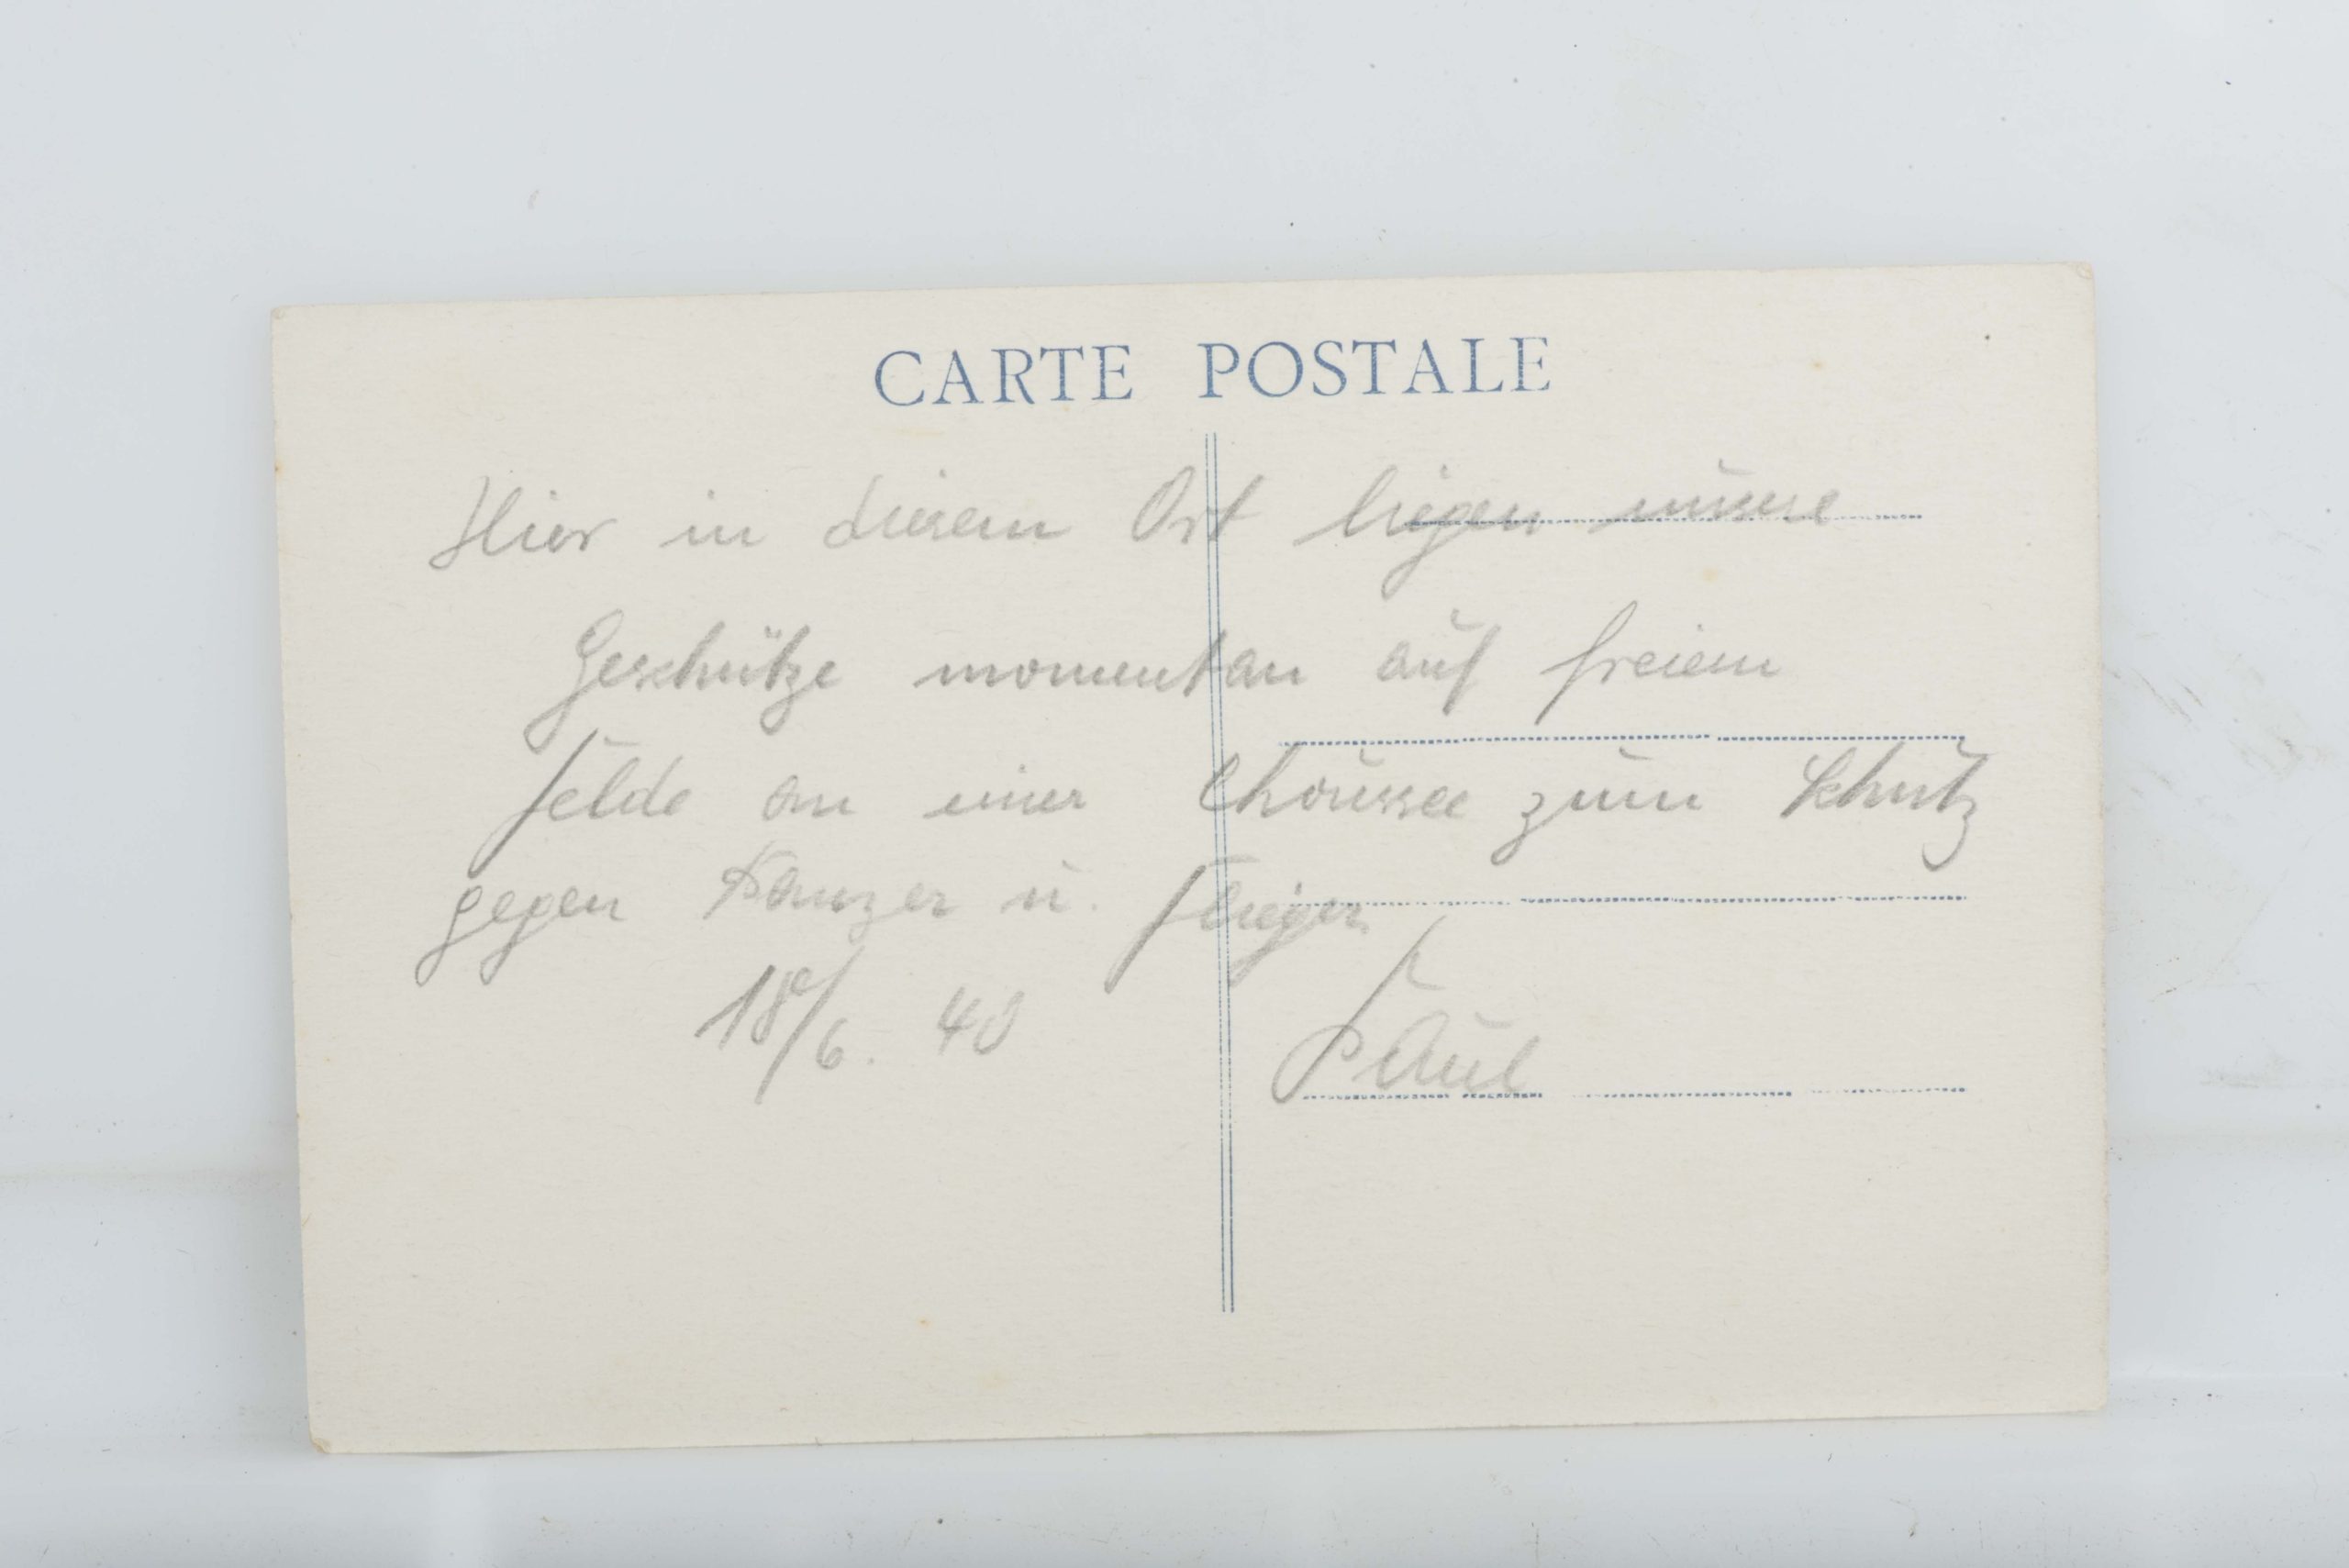 CARTE POSTALE
Hier in diesem Ort liegen unsere
Geschütze momentan auf freiem
Felde an einer Chaussee zum Schutz
gegen Panzer u. Flieger
18/6. 40 Paul